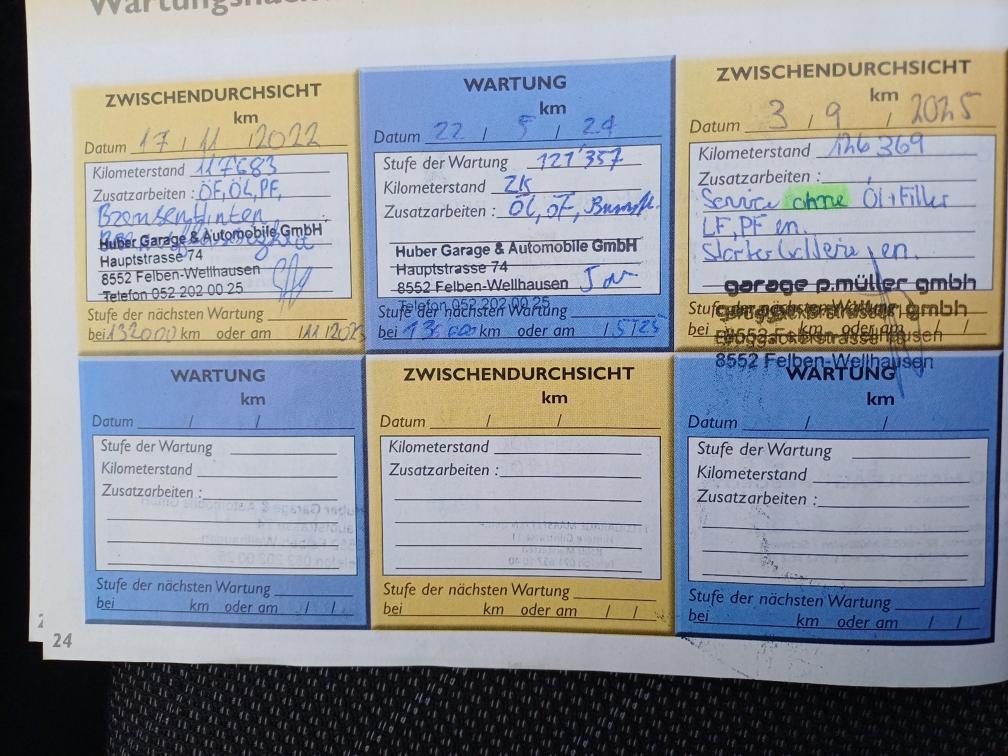 Wartungsnach
ZWISCHENDURCHSICHT
km
Datum 17 / 11 / 2022
Kilometerstand 117683
Zusatzarbeiten : ÖF, ÖL, PF,
Bremsen Hinten
Huber Garage & Automobile GmbH
Hauptstrasse 74
8552 Felben-Wellhausen
Telefon 052 202 00 25
Stufe der nächsten Wartung
bei 132000 km oder am 1/11/2023
WARTUNG
km
Datum 22 / 5 / 24
Stufe der Wartung 121'357
Kilometerstand 2K
Zusatzarbeiten : ÖL, ÖF,
Huber Garage & Automobile GmbH
Hauptstrasse 74
8552 Felben-Wellhausen
Telefon 052 202 00 25
Stufe der nächsten Wartung
bei km oder am / 5 / 25
ZWISCHENDURCHSICHT
km
Datum 3 / 9 / 2025
Kilometerstand 126 369
Zusatzarbeiten :
Service ohne Öl + Filter
LF, PF en.
Starterbatterie en.
garage p.müller gmbh
Stufe der nächsten Wartung
bei km oder am / /
8552 Felben-Wellhausen
WARTUNG
km
Datum / /
Stufe der Wartung
Kilometerstand
Zusatzarbeiten :
Stufe der nächsten Wartung
bei km oder am / /
ZWISCHENDURCHSICHT
km
Datum / /
Kilometerstand
Zusatzarbeiten :
Stufe der nächsten Wartung
bei km oder am / /
WARTUNG
km
Datum / /
Stufe der Wartung
Kilometerstand
Zusatzarbeiten :
Stufe der nächsten Wartung
bei km oder am / /
24